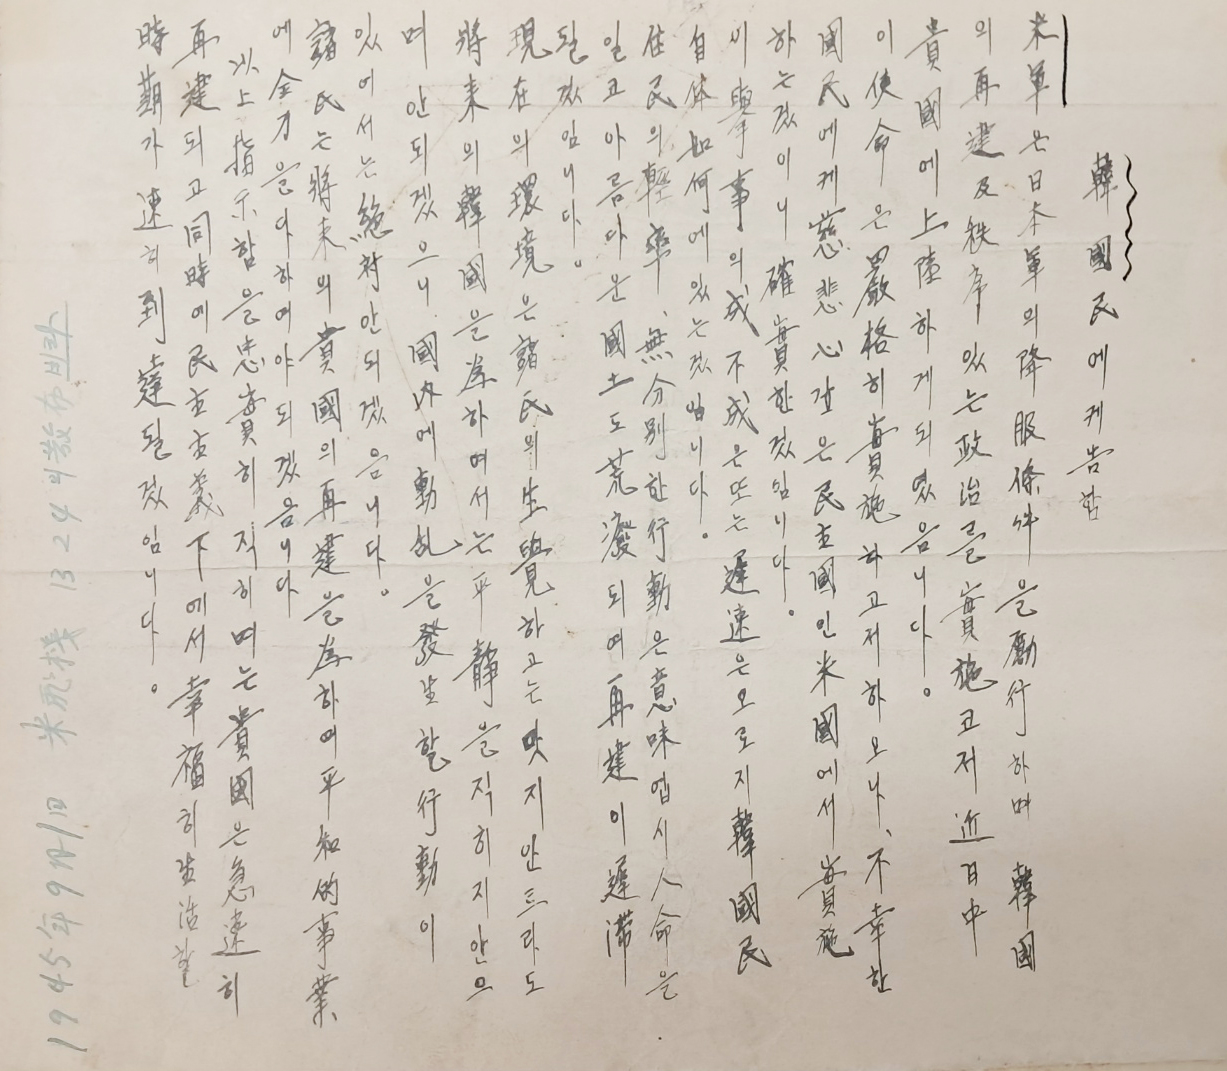 韓國民에게告함
米軍은日本軍의降服條件을勵行하며 韓國
의再建及秩序있는政治를實施코저近日中
貴國에上陸하게되엿음니다。
이使命은嚴格히實施하고저하오나、不幸한
國民에게慈悲心갚은民主國인米國에서實施
하는것이니 確實한것임니다。
이擧事의成不成은또는遲速은오로지韓國民
自体如何에있는것임니다。
住民의輕率、無分別한行動은意味업시人命을
일코아름다운國土도荒廢되여再建이遲滯
될것임니다。
現在의環境은諸民의生覺하고는맛지안트라도
將來의韓國을為하여서는平靜을직히지안으
며안되겠으니國內에動乱을發生할行動이
있어서는絶対안되겠음니다。
諸民는將来의貴國의再建을為하여平和的事業
에全力을다하여야되겠음니다
以上指示함을忠實히직히며는貴國은急速히
再建되고同時에民主主義下에서幸福히生活할
時期가速히到達될것임니다。
1945年9月1日 米飛機 B24이散布삐라